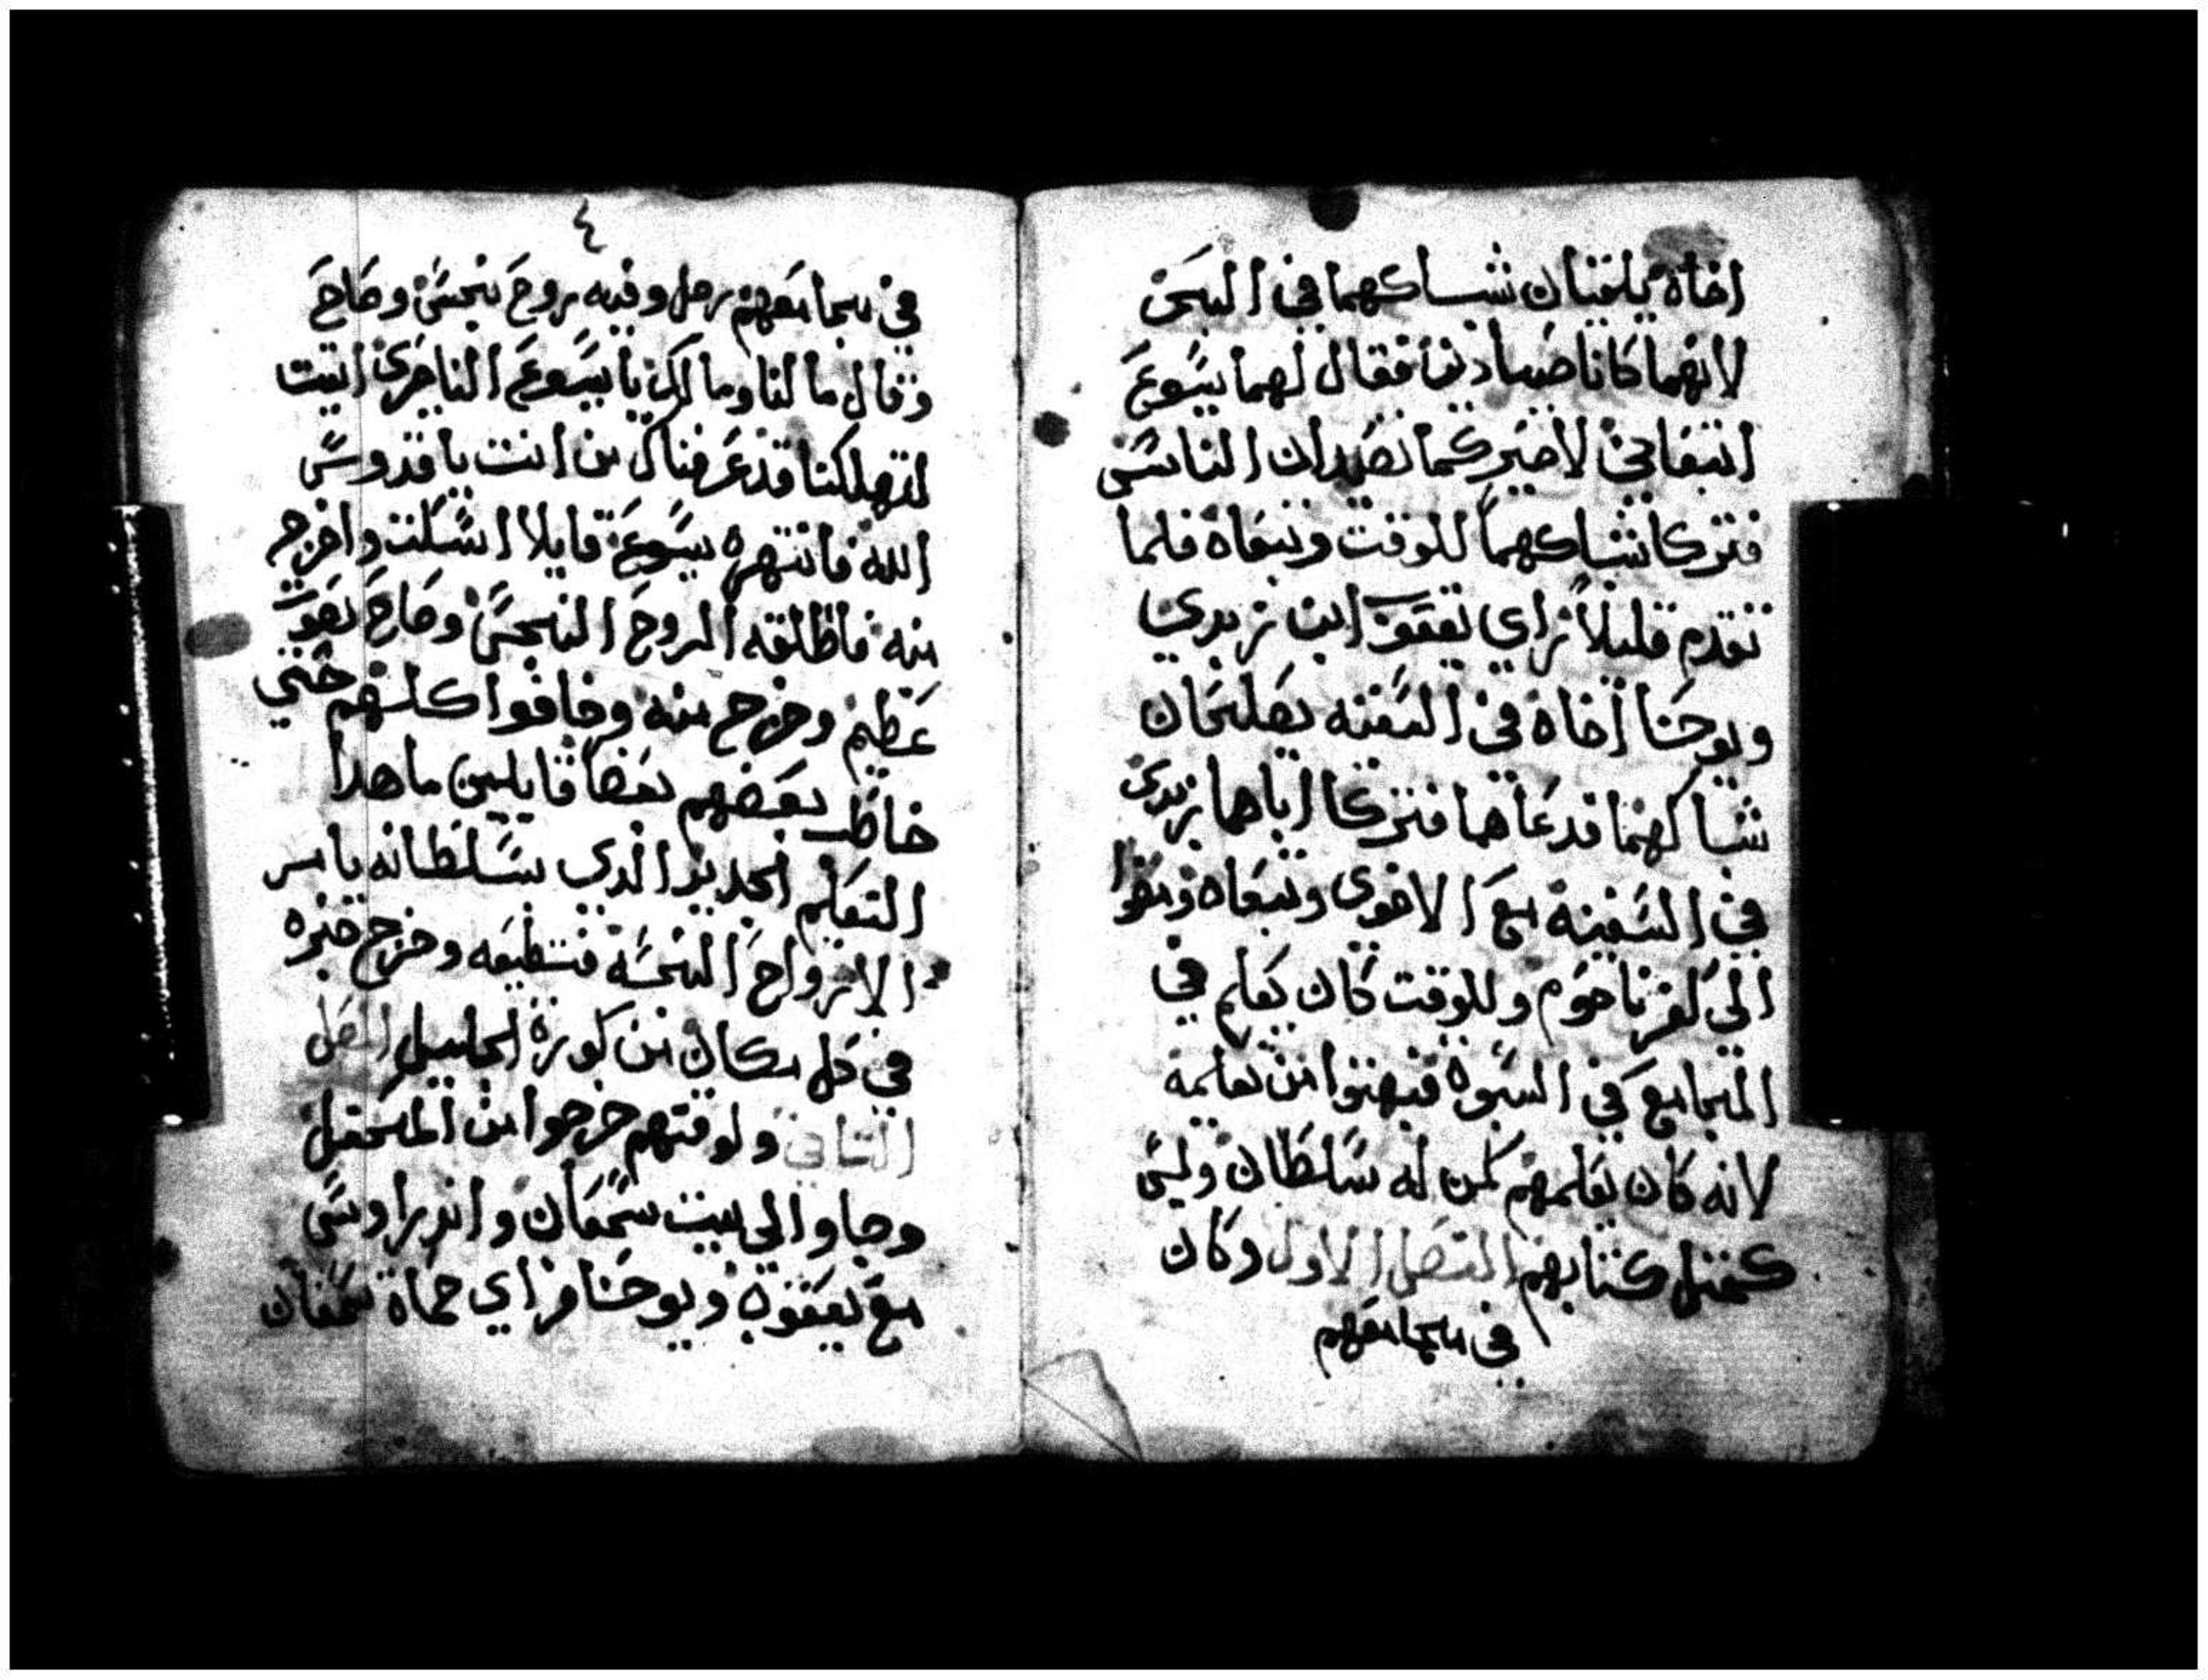 اخاه يلقيان شباكهما في البحر
لانهما كانا صيادين فقال لهما يسوع
اتبعاني لاصيركما تصيدان الناس
فتركا شباكهما للوقت وتبعاه فلما
تقدم قليلاً راي يعقوب ابن زبدي
ويوحنا اخاه في السفينه يصلحان
شباكهما فدعاهما فتركا اباهما زبدي
في السفينة مع الاخري وتبعاه ومضوا
الي كفرناحوم وللوقت كان يعلم في
المجامع في السبوة فبهتوا من تعليمه
لانه كان يعلمهم كمن له سلطان وليس
كمثل كتابهم الفصل الاول وكان
في مجامعهم
٤
في مجامعهم رجل وفيه روح نجس وصاح
وقال ما لنا وما لك يا يسوع الناصري اتيت
لتهلكنا قد عرفناك من انت يا قدوس
الله فانتهره يسوع قايلا اسكت واخرج
منه فاطلقه الروح النجس وصاح بصوت
عظيم وخرج منه وخافوا كلهم حتي
خاطب بعضهم بعضا قايلين ما هدا
التعليم الجديد الدي بسلطانه يامر
الارواح النجسه فتطيعه وخرج خبره
في كل مكان من كورة الجليل الفصل
التاني ولوقتهم خرجوا من المحفل
وجاوا الي بيت سمعان واندراوس
مع يعقوب ويوحنا فراي حماة سمعان